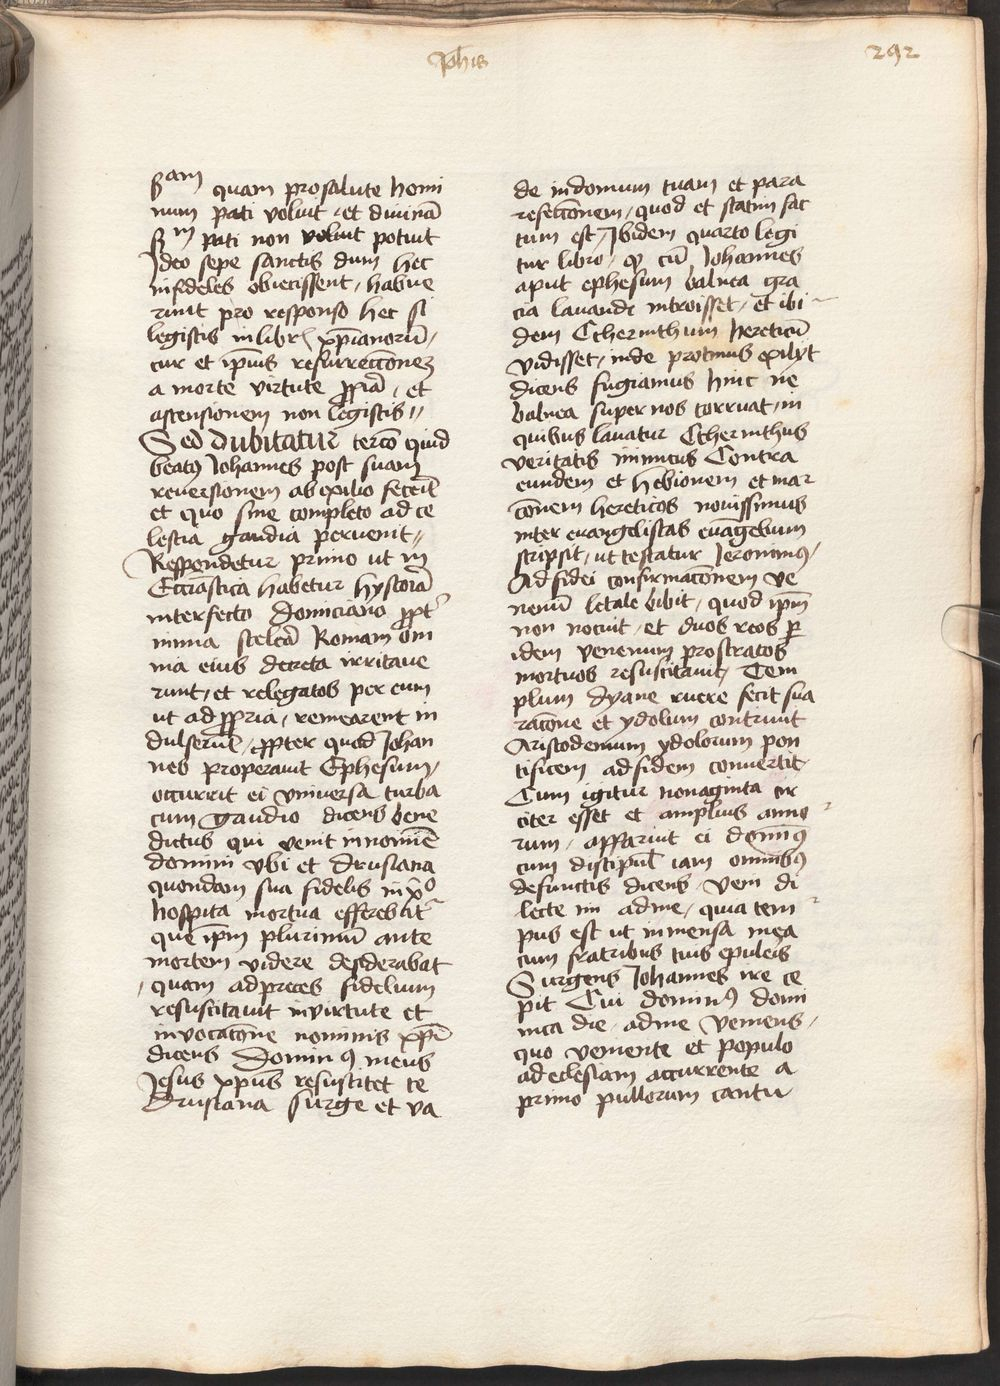 Johis
292
sam quam pro salute homi
num pati voluit et divinā
sm pati non voluit potuit
Ideo sepe sanctis dum hec
infideles obiecissent, habue
runt pro responso hec si
legistis in libr xp̄ianorū,
cur et ip̄ius resurrecc̄onez
a morte virtute pp̄ia, et
ascensionem non legistis //
Sed dubitatur terc̄o quid
beatꝰ Johannes post suam
reversionem ab exilio fecerit
et quo fine completo ad ce
lestia gaudia pervenit //
Respondetur primo ut in
Ecc̄iastica habetur hystoria
interfecto Domiciano pp̄t
nimia scelera Romam om
nia eius decreta irritave
runt, et relegatos per eum
ut ad pp̄ria, remearent in
dulserūt, pp̄ter quod Johan
nes properavit Ephesum,
occurrit ei universa turba
cum gaudio dicens bene
dictus qui venit in nomīe
domini ubi et Drusiana
quondam sua fidelis in xp̄o
hospita mortua efferebat̄
que ip̄m plurimū ante
mortem videre desiderabat
, quam ad preces fidelium
resuscitavit in virtute et
invocac̄one nominis xp̄i
dicens Dominꝰ meus
Jesus xp̄us resuscitet te
Drusiana surge et va
de in domum tuam et para
refecc̄onem, quod et statim fac
tum est, Ibidem quarto legi
tur libro, qꝫ cū Johannes
aput ephesum balnea gra
cia lavandi introisset, et ibi
dem Cherinthum hereticū
vidisset, inde protinus exilyt
dicens fugiamus hinc ne
balnea super nos corruat, in
quibus lavatur Cherinthus
veritatis inimicus Contra
eundem et hebionem et mar
c̄onem hereticos novissimus
inter evangelistas evāgelium
scripsit, ut testatur Jeronimꝰ,
Ad fidei confirmac̄onem ve
nenū letale bibit, quod ip̄m
non nocuit, et duos reos p̱
idem venenum prostratos
mortuos resuscitavit, Tem
plum dyane ruere fecit sua
rac̄one et ydolum contrivit
Aristodemum ydolorum pon
tificem ad fidem convertit
Cum igitur nonaginta cir
citer esset et amplius anno
rum, apparuit ei dominꝰ
cum discipul̄ iam omnibꝰ
defunctis dicens, Veni di
lecte mi ad me, quia tem
pus est ut in mensa mea
cum fratribus tuis epuleis
Surgens Johannes ire ce
pit Cui dominꝰ domi
nica die, ad me venies,
quo veniente et populo
ad eclesiam accurrente a
primo pullorum cantu